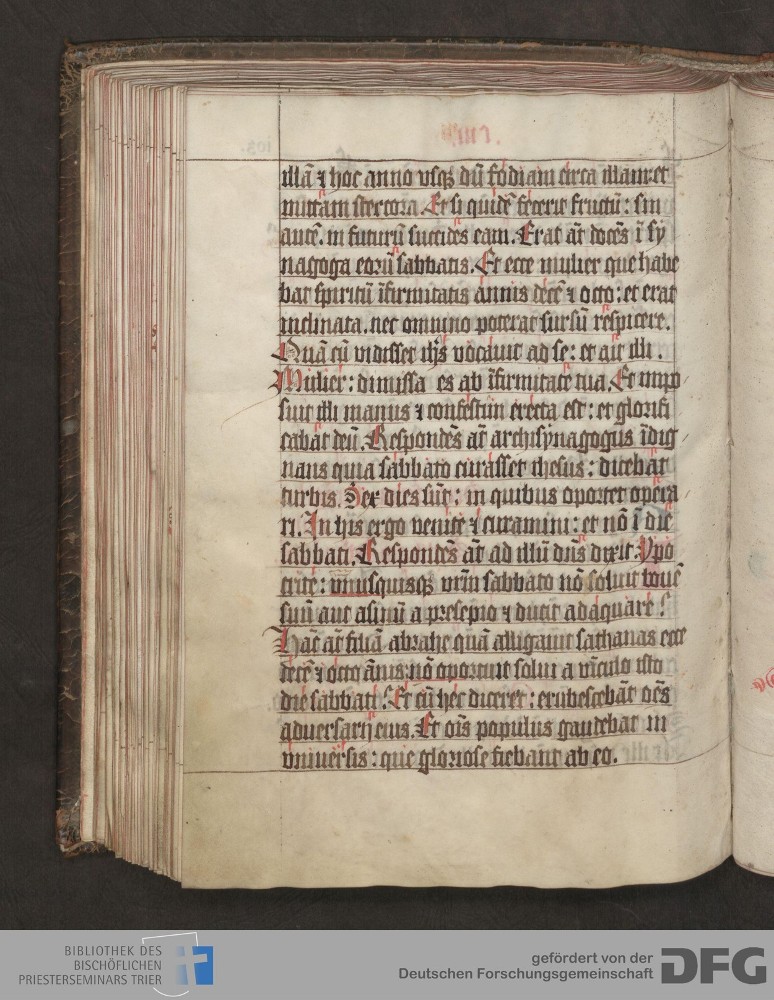 illā ⁊ hoc anno vsqꝫ dū fodiam circa illam: et
mittam stercora. Et si quidē fecerit fructū: sin
autē. in futurū succides eam. Erat aūt docēs ī sy
nagoga eorū sabbatis. Et ecce mulier que habe
bat spiritū īfirmitatis annis decē ⁊ octo: et erat
inclinata. nec omnino poterat sursū respicere.
Quā cū vidisset ihs̄ vocauit ad se: et ait illi.
Mulier: dimissa es ab īfirmitate tua. Et impo
suit illi manus ⁊ confestim erecta est: et glorifi
cabat deū. Respondēs aūt archisynagogus īdig
nans quia sabbato curasset ihesus: dicebat
turbis. Sex dies sūt: in quibus oportet opera
ri. In his ergo venite ⁊ curamini: et nō ī die
sabbati. Respondēs aūt ad illū dn̄s dixit. Ypo
crite: vnusquisqꝫ vr̄m sabbato nō soluit bouē
suū aut asinū a presepio ⁊ ducit adaquare?
Hāc aūt filiā abrahe quā alligauit sathanas ecce
decē ⁊ octo ānis nō oportuit solui a vīculo isto
die sabbati? Et cū hec diceret: erubescebāt oēs
aduersarij eius. Et oīs populus gaudebat in
vniuersis: que gloriose fiebant ab eo.
BIBLIOTHEK DES
BISCHÖFLICHEN
PRIESTERSEMINARS TRIER
gefördert von der
Deutschen Forschungsgemeinschaft
DFG